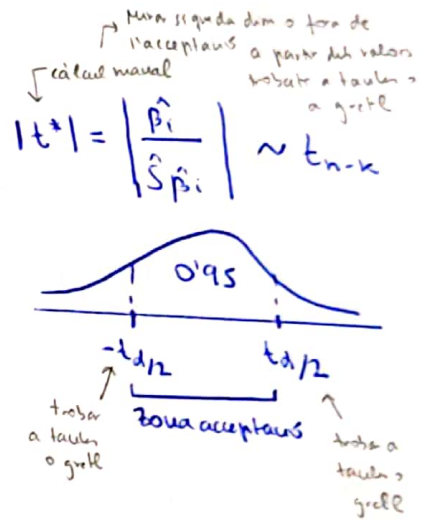 Mirar si queda dins o fora de
l'acceptació
a partir dels valors
trobats a taules o
a gretl
càlcul manual
|t*| = | β̂i / Ŝβ̂i | ~ tn-k
0'95
-tα/2 tα/2
zona acceptació
trobar
a taules
o gretl
trobar a
taules o
gretl